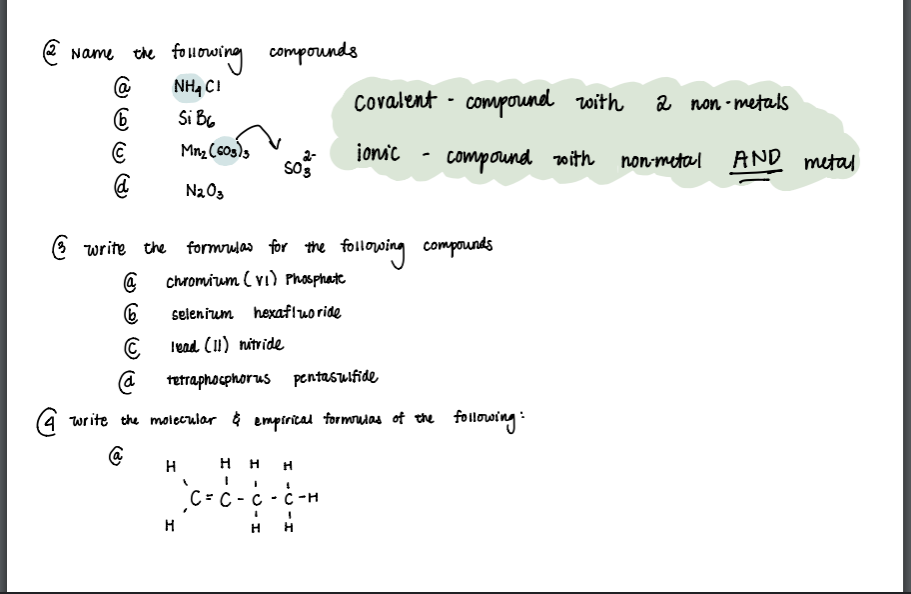 ② Name the following compounds
ⓐ NH4Cl
ⓑ SiB6
ⓒ Mn2(SO3)3
SO3 2-
ⓓ N2O3
Covalent - compound with 2 non-metals
ionic - compound with non-metal AND metal
③ write the formulas for the following compounds
ⓐ chromium (VI) Phosphate
ⓑ selenium hexafluoride
ⓒ lead (II) nitride
ⓓ tetraphosphorus pentasulfide
④ write the molecular & empirical formulas of the following:
ⓐ
H H H H
C = C - C - C - H
H H H